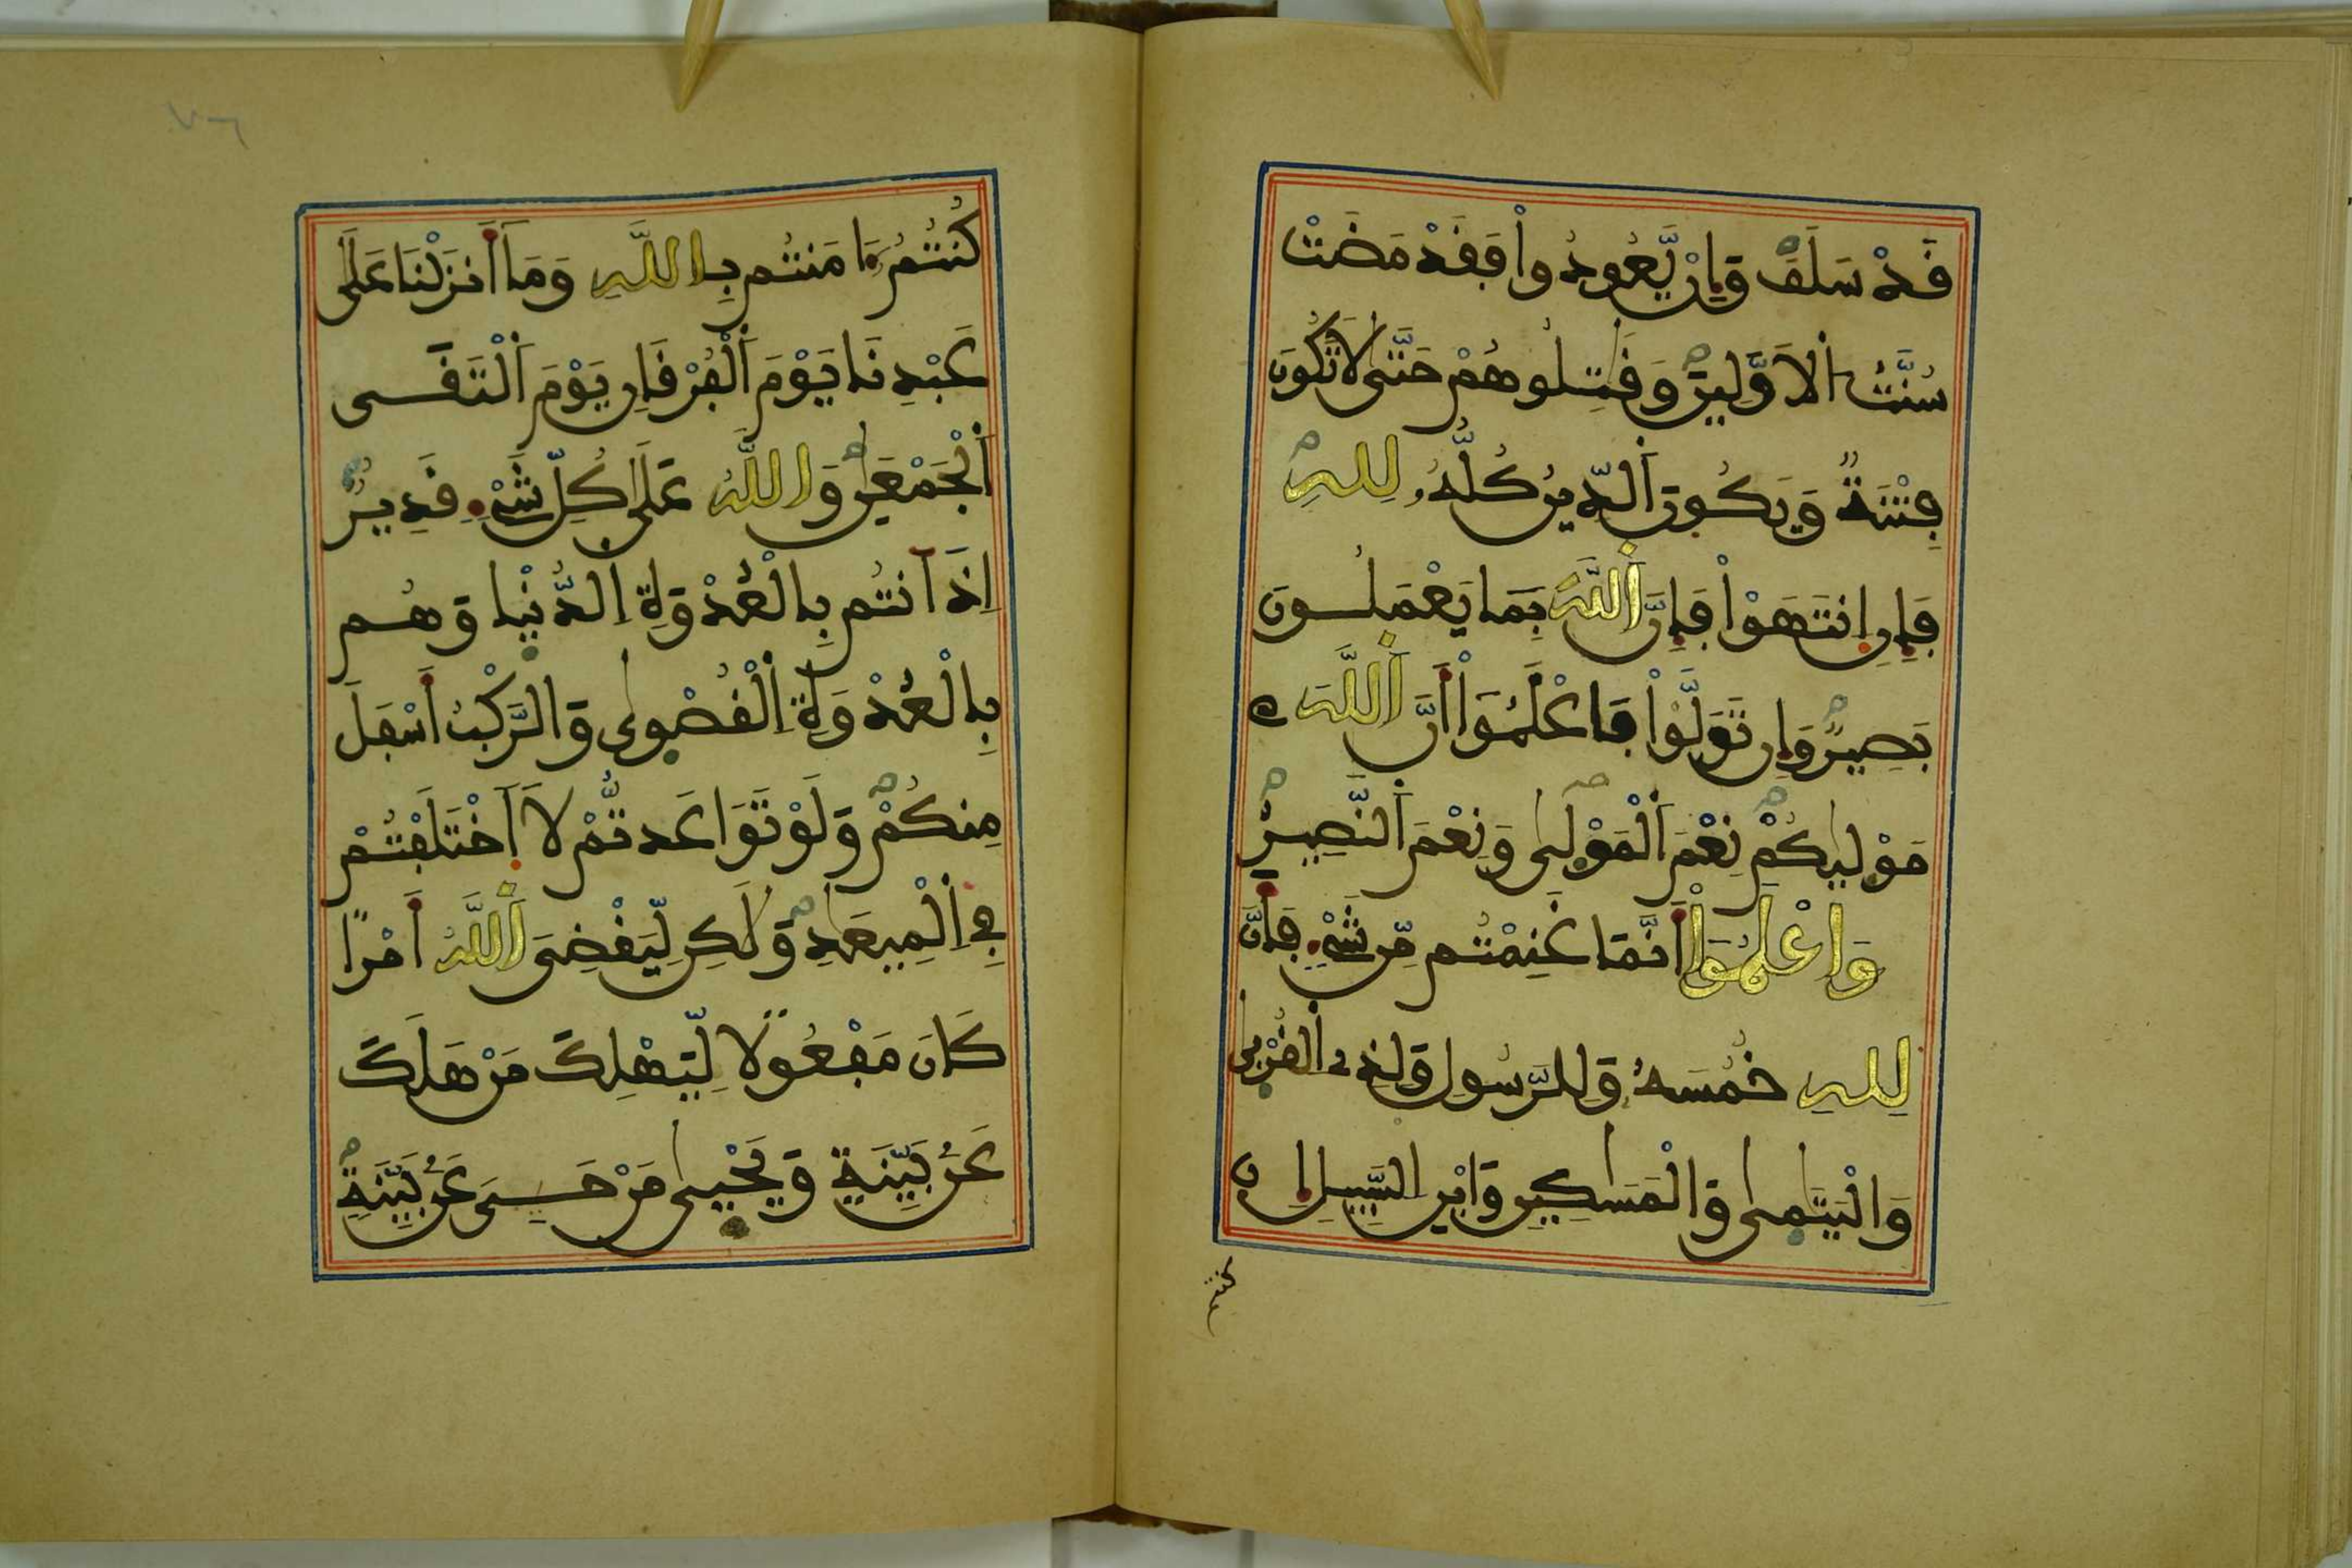 قَدْ سَلَفَ وَإِنْ يَّعُودُواْ فَقَدْ مَضَتْ
سُنَّتُ اُ۬لَاوَّلِينَ وَقَٰتِلُوهُمْ حَتَّىٰ لَا تَكُونَ
فِتْنَةٌ وَيَكُونَ اَ۬لدِّينُ كُلُّهُۥ لِلهِ
فَإِنِ اِنتَهَوْاْ فَإِنَّ اَ۬للَّهَ بِمَا يَعْمَلُونَ
بَصِيرٌ وَإِن تَوَلَّوْاْ فَاعْلَمُوٓاْ أَنَّ اَ۬للَّهَ
مَوْلَيٰكُمْ نِعْمَ اَ۬لْمَوْلَىٰ وَنِعْمَ اَ۬لنَّصِيرُ
وَاعْلَمُوٓاْ أَنَّمَا غَنِمْتُم مِّن شَيْءٍ فَأَنَّ
لِلهِ خُمُسَهُۥ وَلِلرَّسُولِ وَلِذِي اِ۬لْقُرْبَىٰ
وَالْيَتَٰمَىٰ وَالْمَسَٰكِينِ وَابْنِ اِ۬لسَّبِيلِ إِن
كنتم
كُنتُمُۥٓ ءَامَنتُم بِاللَّهِ وَمَآ أَنزَلْنَا عَلَىٰ
عَبْدِنَا يَوْمَ اَ۬لْفُرْقَانِ يَوْمَ اَ۬لْتَقَى
اَ۬لْجَمْعَٰنِ وَاللَّهُ عَلَىٰ كُلِّ شَيْءٍ قَدِيرٌ
اِذَ اَنتُم بِالْعُدْوَةِ اِ۬لدُّنْيٰا وَهُم
بِالْعُدْوَةِ اِ۬لْقُصْوٰى وَالرَّكْبُ أَسْفَلَ
مِنكُمْ وَلَوْ تَوَاعَدتُّمْ لَاَخْتَلَفْتُمْ
فِي اِ۬لْمِيعَٰدِ وَلَٰكِن لِّيَقْضِيَ اَ۬للَّهُ أَمْرًا
كَانَ مَفْعُولًا لِّيَهْلِكَ مَنْ هَلَكَ
عَنۢ بَيِّنَةٍ وَيَحْيٰى مَنْ حَيِيَ عَنۢ بَيِّنَةٍ